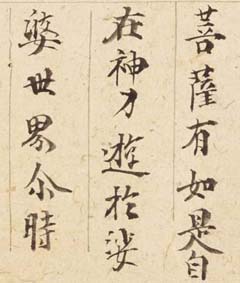 菩薩有如是自
在神力遊於娑
婆世界尒時